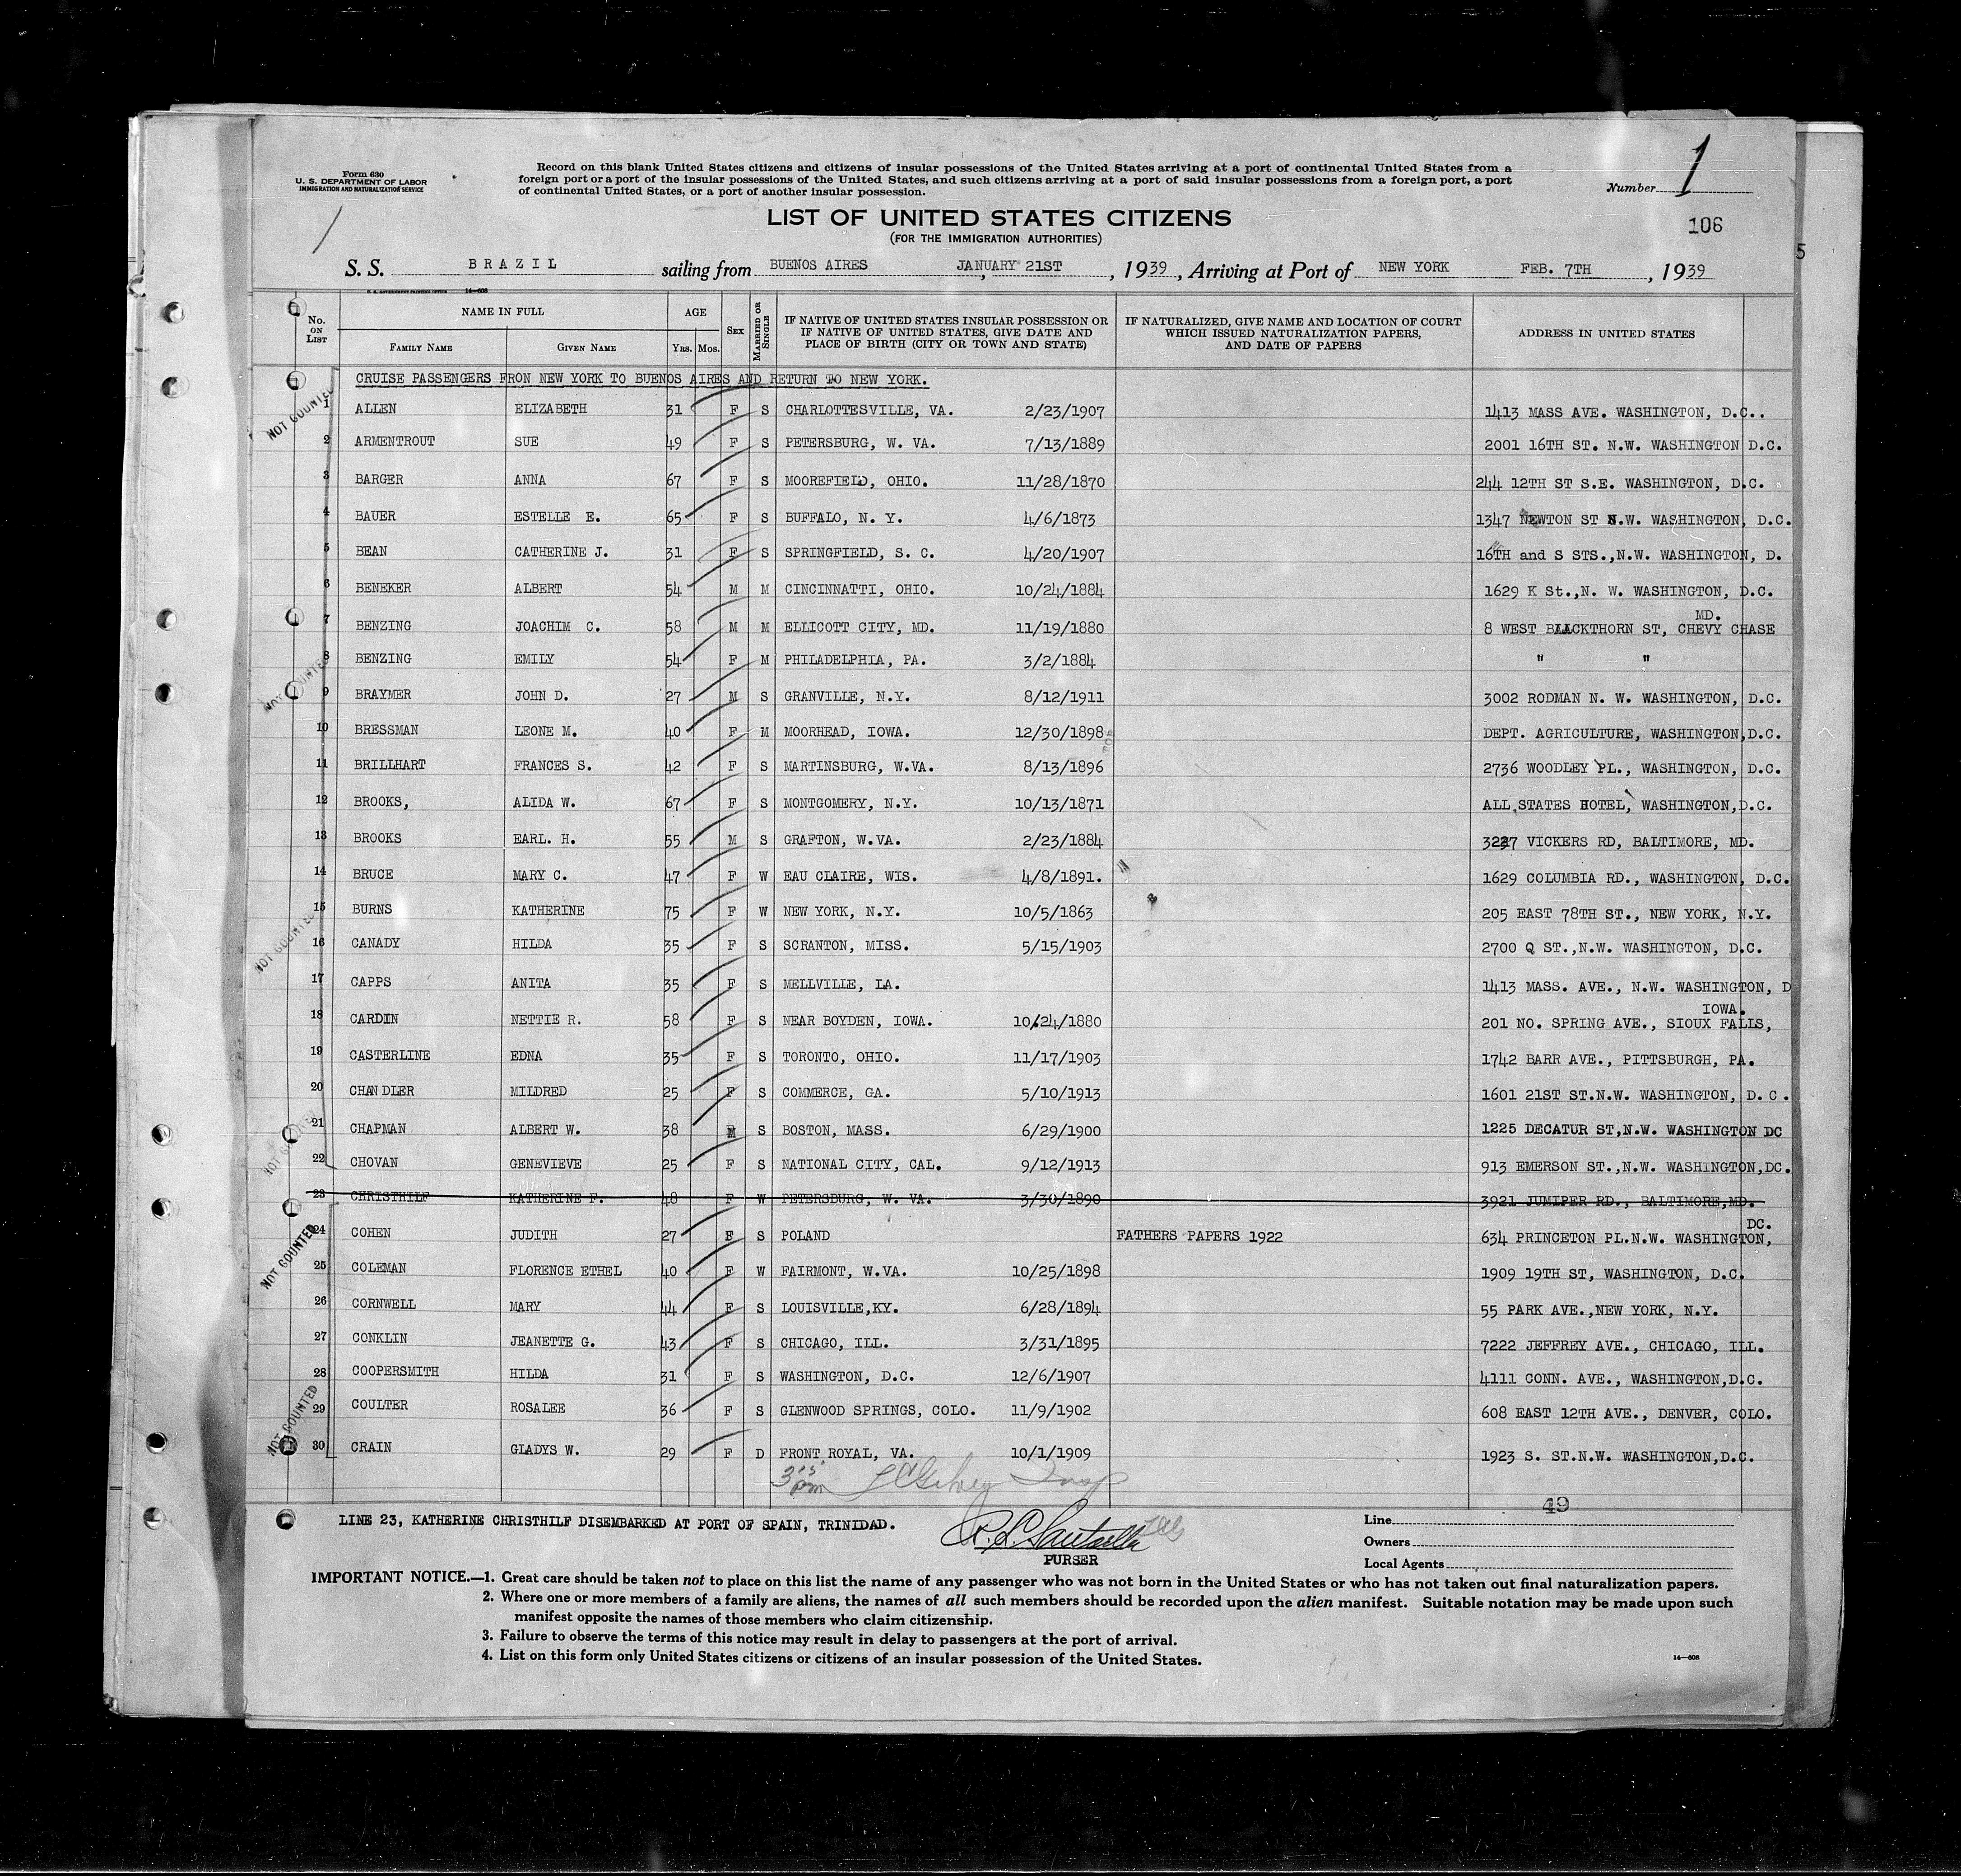 Form 630
U. S. DEPARTMENT OF LABOR
IMMIGRATION AND NATURALIZATION SERVICE
Record on this blank United States citizens and citizens of insular possessions of the United States arriving at a port of continental United States from a
foreign port or a port of the insular possessions of the United States, and such citizens arriving at a port of said insular possessions from a foreign port, a port
of continental United States, or a port of another insular possession.
Number 1
LIST OF UNITED STATES CITIZENS
(FOR THE IMMIGRATION AUTHORITIES)
106
5
S. S. BRAZIL sailing from BUENOS AIRES JANUARY 21ST, 1939, Arriving at Port of NEW YORK FEB. 7TH, 1939
U. S. GOVERNMENT PRINTING OFFICE 14—608
No. ON LIST NAME IN FULL FAMILY NAME GIVEN NAME AGE Yrs. Mos. SEX MARRIED OR SINGLE IF NATIVE OF UNITED STATES INSULAR POSSESSION OR IF NATIVE OF UNITED STATES, GIVE DATE AND PLACE OF BIRTH (CITY OR TOWN AND STATE) IF NATURALIZED, GIVE NAME AND LOCATION OF COURT WHICH ISSUED NATURALIZATION PAPERS, AND DATE OF PAPERS ADDRESS IN UNITED STATES
CRUISE PASSENGERS FRON NEW YORK TO BUENOS AIRES AND RETURN TO NEW YORK.
NOT COUNTED
1 ALLEN ELIZABETH 31 F S CHARLOTTESVILLE, VA. 2/23/1907 1413 MASS AVE. WASHINGTON, D.C..
2 ARMENTROUT SUE 49 F S PETERSBURG, W. VA. 7/13/1889 2001 16TH ST. N.W. WASHINGTON D.C.
3 BARGER ANNA 67 F S MOOREFIELD, OHIO. 11/28/1870 244 12TH ST S.E. WASHINGTON, D.C.
4 BAUER ESTELLE E. 65 F S BUFFALO, N. Y. 4/6/1873 1347 NEWTON ST N.W. WASHINGTON, D.C.
5 BEAN CATHERINE J. 31 F S SPRINGFIELD, S. C. 4/20/1907 16TH and S STS.,N.W. WASHINGTON, D.
6 BENEKER ALBERT 54 M M CINCINNATTI, OHIO. 10/24/1884 1629 K St.,N. W. WASHINGTON, D.C.
MD.
7 BENZING JOACHIM C. 58 M M ELLICOTT CITY, MD. 11/19/1880 8 WEST BLACKTHORN ST, CHEVY CHASE
8 BENZING EMILY 54 F M PHILADELPHIA, PA. 3/2/1884 " "
NOT COUNTED
9 BRAYMER JOHN D. 27 M S GRANVILLE, N.Y. 8/12/1911 3002 RODMAN N. W. WASHINGTON, D.C.
10 BRESSMAN LEONE M. 40 F M MOORHEAD, IOWA. 12/30/1898 DEPT. AGRICULTURE, WASHINGTON,D.C.
11 BRILLHART FRANCES S. 42 F S MARTINSBURG, W.VA. 8/13/1896 2736 WOODLEY PL., WASHINGTON, D.C.
12 BROOKS, ALIDA W. 67 F S MONTGOMERY, N.Y. 10/13/1871 ALL STATES HOTEL, WASHINGTON,D.C.
13 BROOKS EARL. H. 55 M S GRAFTON, W.VA. 2/23/1884 VICKERS RD, BALTIMORE, MD.
14 BRUCE MARY C. 47 F W EAU CLAIRE, WIS. 4/8/1891. 1629 COLUMBIA RD., WASHINGTON, D.C.
15 BURNS KATHERINE 75 F W NEW YORK, N.Y. 10/5/1863 205 EAST 78TH ST., NEW YORK, N.Y.
NOT COUNTED
16 CANADY HILDA 35 F S SCRANTON, MISS. 5/15/1903 2700 Q ST.,N.W. WASHINGTON, D.C.
17 CAPPS ANITA 35 F S MELLVILLE, LA. 1413 MASS. AVE., N.W. WASHINGTON, D
IOWA.
18 CARDIN NETTIE R. 58 F S NEAR BOYDEN, IOWA. 10/24/1880 201 NO. SPRING AVE., SIOUX FALLS,
19 CASTERLINE EDNA 35 F S TORONTO, OHIO. 11/17/1903 1742 BARR AVE., PITTSBURGH, PA.
20 CHANDLER MILDRED 25 F S COMMERCE, GA. 5/10/1913 1601 21ST ST.N.W. WASHINGTON, D. C .
21 CHAPMAN ALBERT W. 38 M S BOSTON, MASS. 6/29/1900 1225 DECATUR ST,N.W. WASHINGTON DC
NOT COUNTED
22 CHOVAN GENEVIEVE 25 F S NATIONAL CITY, CAL. 9/12/1913 913 EMERSON ST.,N.W. WASHINGTON,DC.
23 CHRISTHILF KATHERINE F. 48 F W PETERSBURG, W. VA. 3/30/1890 3921 JUMIPER RD., BALTIMORE,MD.
DC.
24 COHEN JUDITH 27 F S POLAND FATHERS PAPERS 1922 634 PRINCETON PL.N.W. WASHINGTON,
NOT COUNTED
25 COLEMAN FLORENCE ETHEL 40 F W FAIRMONT, W.VA. 10/25/1898 1909 19TH ST, WASHINGTON, D.C.
26 CORNWELL MARY 44 F S LOUISVILLE,KY. 6/28/1894 55 PARK AVE.,NEW YORK, N.Y.
27 CONKLIN JEANETTE G. 43 F S CHICAGO, ILL. 3/31/1895 7222 JEFFREY AVE., CHICAGO, ILL.
28 COOPERSMITH HILDA 31 F S WASHINGTON, D.C. 12/6/1907 4111 CONN. AVE., WASHINGTON,D.C.
29 COULTER ROSALEE 36 F S GLENWOOD SPRINGS, COLO. 11/9/1902 608 EAST 12TH AVE., DENVER, COLO.
NOT COUNTED
30 CRAIN GLADYS W. 29 F D FRONT ROYAL, VA. 10/1/1909 1923 S. ST.N.W. WASHINGTON,D.C.
3 15 pm Insp
49
LINE 23, KATHERINE CHRISTHILF DISEMBARKED AT PORT OF SPAIN, TRINIDAD.
PURSER
Line
Owners
Local Agents
IMPORTANT NOTICE.—1. Great care should be taken not to place on this list the name of any passenger who was not born in the United States or who has not taken out final naturalization papers.
2. Where one or more members of a family are aliens, the names of all such members should be recorded upon the alien manifest. Suitable notation may be made upon such
manifest opposite the names of those members who claim citizenship.
3. Failure to observe the terms of this notice may result in delay to passengers at the port of arrival.
4. List on this form only United States citizens or citizens of an insular possession of the United States.
14—608